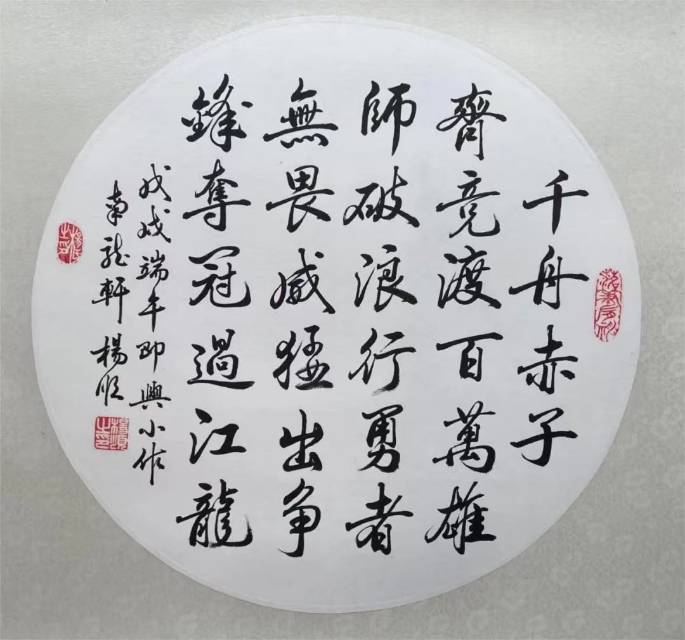 千舟赤子
齊竞渡百萬雄
師破浪行勇者
無畏威猛出争
鋒奪冠過江龍
戊戌端午即興小作
南龙軒楊順